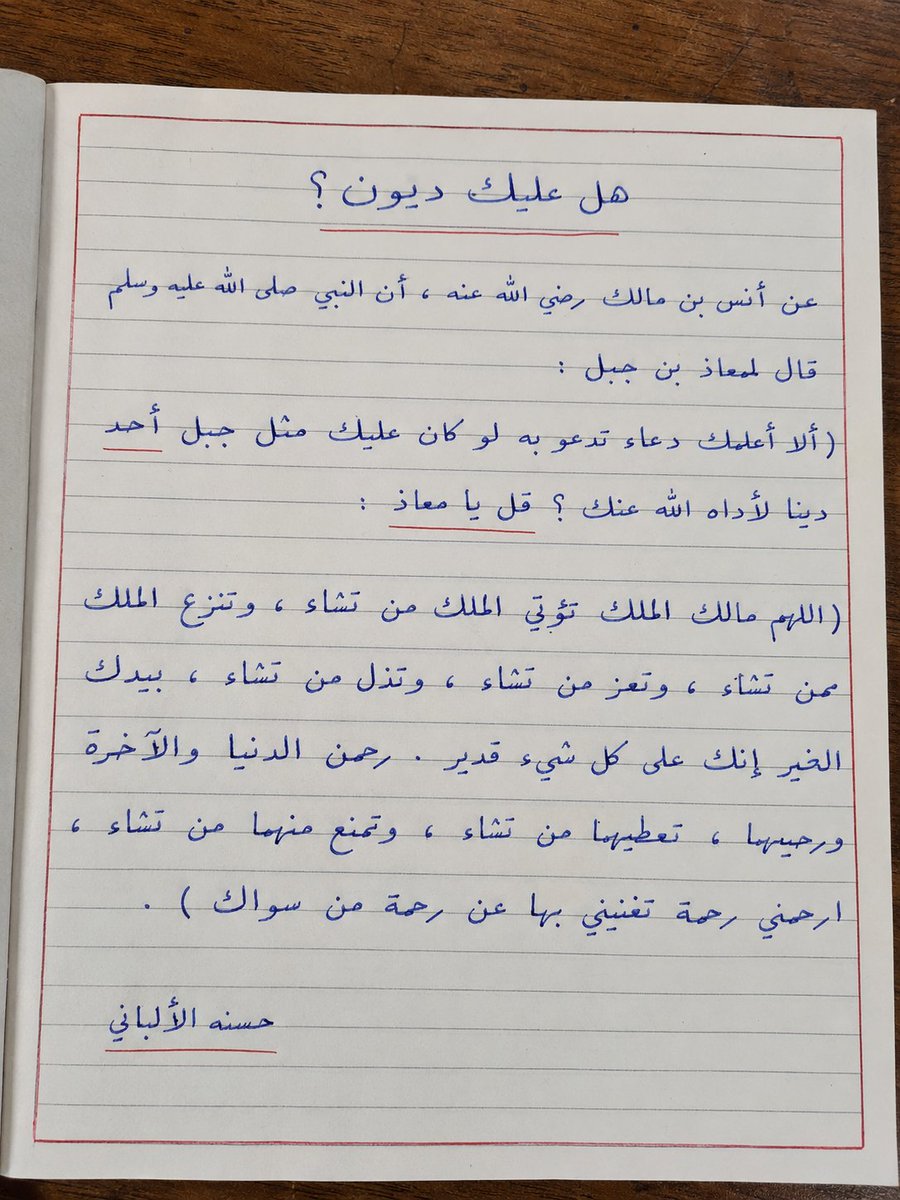 هل عليك ديون ؟
عن أنس بن مالك رضي الله عنه ، أن النبي صلى الله عليه وسلم
قال لمعاذ بن جبل :
(ألا أعلمك دعاء تدعو به لو كان عليك مثل جبل أحد
دينا لأداه الله عنك ؟ قل يا معاذ :
(اللهم مالك الملك تؤتي الملك من تشاء ، وتنزع الملك
ممن تشاء ، وتعز من تشاء ، وتذل من تشاء ، بيدك
الخير إنك على كل شيء قدير . رحمن الدنيا والآخرة
ورحيمهما ، تعطيهما من تشاء ، وتمنع منهما من تشاء ،
ارحمني رحمة تغنيني بها عن رحمة من سواك ) .
حسنه الألباني